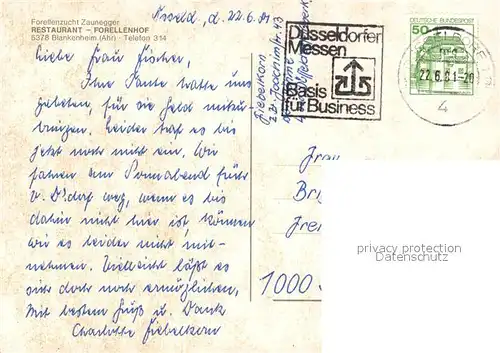 Forellenzucht Zaunegger
RESTAURANT - FORELLENHOF
5378 Blankenheim (Ahr) - Telefon 314
d. 22.6.81
Liebe Frau Fischer,
Ihre Tante hatte uns
gebeten, für sie Geld mitzu-
bringen. Leider traf es bis
jetzt noch nicht ein. Wir
fahren am Sonnabend früh
v. D'dorf weg, wenn es bis
dahin nicht hier ist, können
wir es leider nicht mit-
nehmen. Vielleicht läßt es
sich doch noch ermöglichen,
Mit bestem Gruß u. Dank
Charlotte Fiebelkorn
Fiebelkorn
z.Zt. Joachimstr. 43
Düsseldorfer
Messen
Basis
für Business
DEUTSCHE BUNDESPOST
50
22.6.81-20
4
Frau
Br
1000
privacy protection
Datenschutz